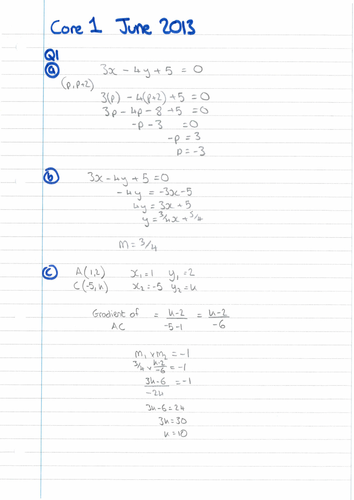 Core 1 June 2013
Q1
(a) 3x - 4y + 5 = 0
(p, p+2)
3(p) - 4(p+2) + 5 = 0
3p - 4p - 8 + 5 = 0
-p - 3 = 0
-p = 3
p = -3
(b) 3x - 4y + 5 = 0
-4y = -3x - 5
4y = 3x + 5
y = 3/4x + 5/4
m = 3/4
(c) A(1,2) x₁ = 1 y₁ = 2
C(-5, k) x₂ = -5 y₂ = k
Gradient of AC = k-2/-5-1 = k-2/-6
m₁ x m₂ = -1
3/4 x k-2/-6 = -1
3k-6/-24 = -1
3k - 6 = 24
3k = 30
k = 10